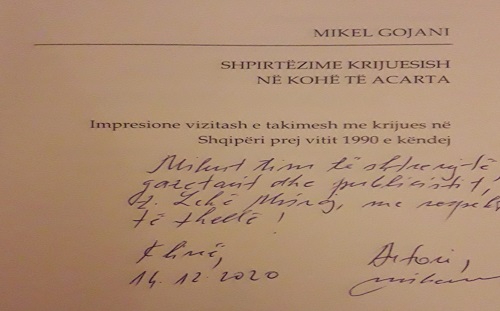 MIKEL GOJANI
SHPIRTËZIME KRIJUESISH
NË KOHË TË ACARTA
Impresione vizitash e takimesh me krijues në
Shqipëri prej vitit 1990 e këndej
Mikut tim të shtrenjtë
gazetarit dhe publicistit,
z. Lekë Mrijaj, me respekt
të thellë!
Klinë,
14.12.2020
Autori,